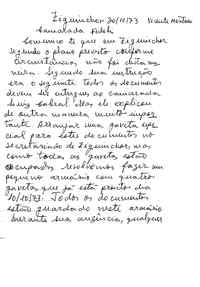 Zeguinchor 30/10/73 Vicente Martins
Camarada Fidelis
Comunico te que em Zeguinchor
segundo o plano previsto conforme
circunstancia, não foi da mesma
neira segundo sua instrução
era o seguinte todos os documentos
devem ser entregues ao camarada
Luiz Cabral. Mas ele explicou
de outra maneira muito impor
tante arranjar uma gaveta espe
cial para estes documentos no
secretariado de Zeguinchor, mas
como todas as gavetas estão
ocupadas, resolvemos fazer um
pequeno armário com quatro
gavetas que já está pronto dia
10/10/73. Todos os documentos
estão guardado neste armário
durante sua ausência, qualquer